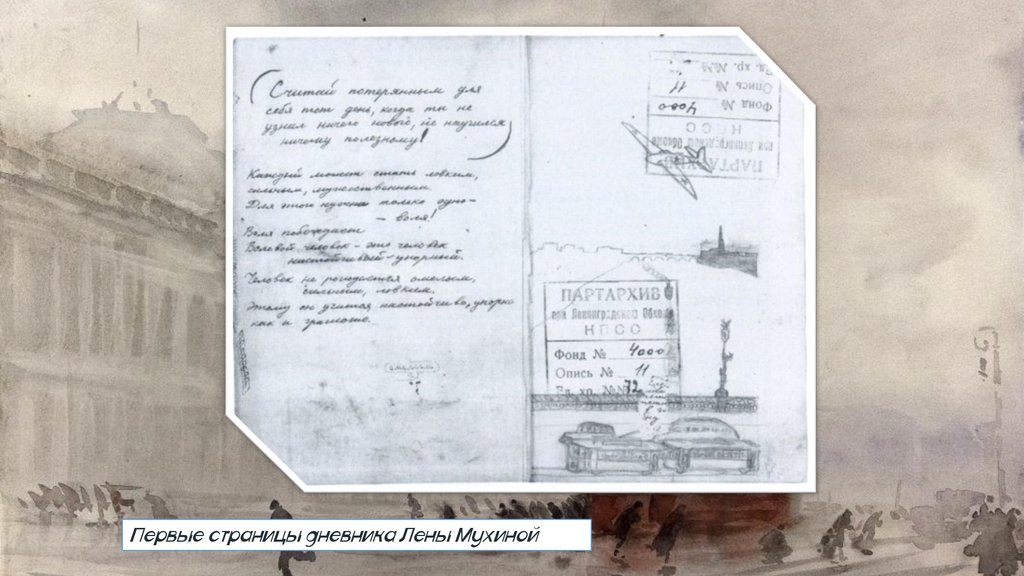 Считай потерянным для
себя тот день, когда ты не
узнал ничего нового, не научился
ничему полезному!
Каждый может стать ловким,
сильным, мужественным.
Для этого нужна только одно-
- воля!
Воля побеждает
Волевой человек - это человек
настойчивый - упорный.
Человек не рождается смелым,
сильным, ловким.
Этому он учится настойчиво, упорно
как и грамоте.
ПАРТАРХИВ
при Ленинградском Обкоме
КПСС
Фонд № 4000
Опись № 11
Ед. хр. №№
ПАРТАРХИВ
при Ленинградском Обкоме
КПСС
Фонд № 4000
Опись № 11
Ед. хр. №№ 72
Первые страницы дневника Лены Мухиной